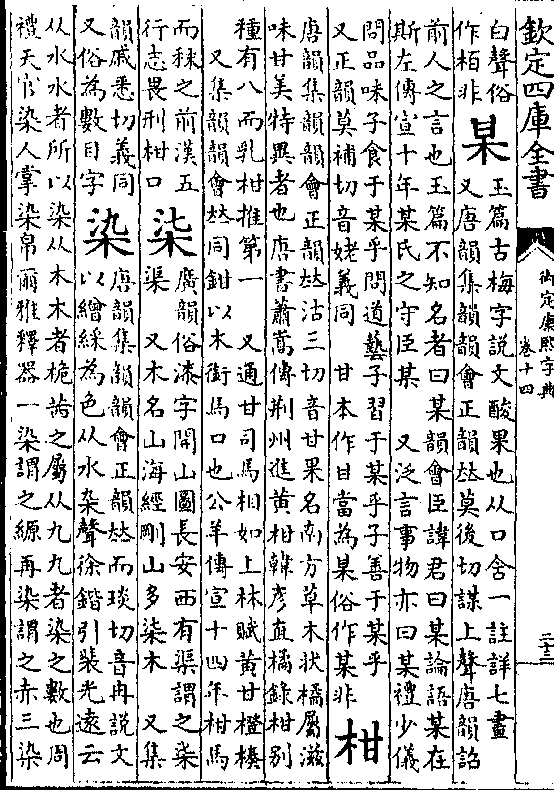 欽定四庫全書
御定康熙字典
卷十四
二十三
白聲俗
作栢非
某
玉篇古梅字説文酸果也从口含一註詳七畫
又唐韻集韻韻會正韻𠀤莫後切謀上聲唐韻詒
前人之言也玉篇不知名者曰某韻會臣諱君曰某論語某在
斯左傳宣十年某氏之守臣某 又泛言事物亦曰某禮少儀
問品味子食于某乎問道藝子習于某乎子善于某乎
又正韻莫補切音姥義同 甘本作日當為某俗作某非
柑
唐韻集韻韻會正韻𠀤沽三切音甘果名南方草木狀橘屬滋
味甘美特異者也唐書蕭嵩傳荆州進黄柑韓彦直橘錄柑别
種有八而乳柑推第一 又通甘司馬相如上林賦黄甘橙楱
又集韻韻會𠀤同鉗以木銜馬口也公羊傳宣十四年柑馬
而秣之前漢五
行志畏刑柑口
柒
廣韻俗漆字開山圖長安西有渠謂之柒
渠 又木名山海經剛山多柒木 又集
韻戚悉切義同
又俗為數目字
染
唐韻集韻韻會正韻𠀤而琰切音冉説文
以繒綵為色从水杂聲徐鍇引裴光遠云
从水水者所以染从木木者桅茜之屬从九九者染之數也周
禮天官染人掌染帛爾雅釋器一染謂之縓再染謂之赤三染